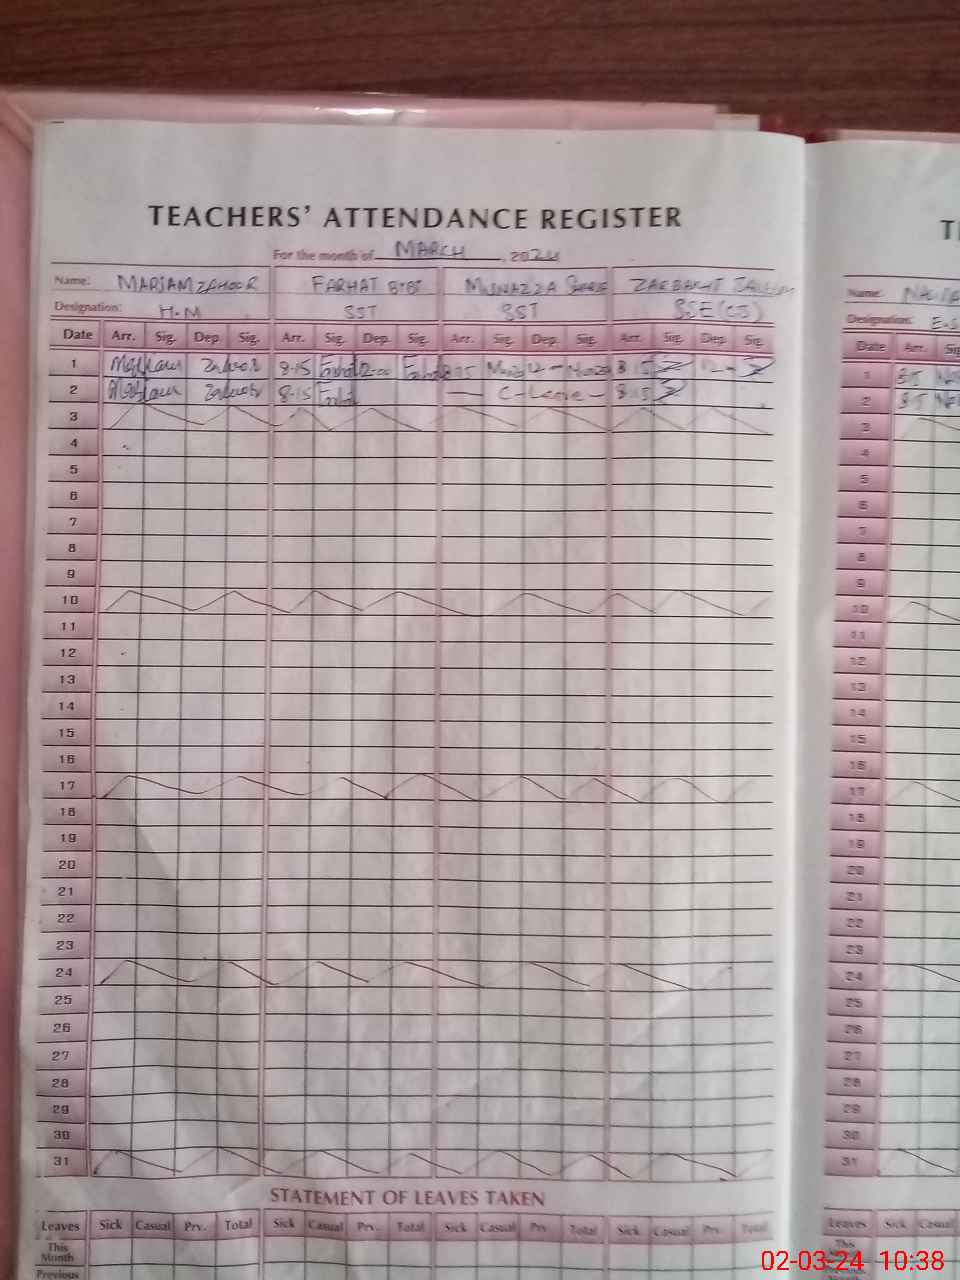 TEACHERS' ATTENDANCE REGISTER
For the month of MARCH, 2024
Name: MARIAM ZAHOOR FARHAT BIBI MUNAZZA ZARBAKHT Name:
Designation: H.M SST SST SSE(CS) Designation:
Date Arr. Sig. Dep. Sig. Arr. Sig. Dep. Sig. Arr. Sig. Dep. Sig. Arr. Sig. Dep. Sig. Date Arr.
1 Zahoor 8-15 Farhat 12-00 Farhat 8-15 12 8-15 12 1
2 Zahoor 8-15 Farhat C-Leave 8-15 2
3 3
4 4
5 5
6 6
7 7
8 8
9 9
10 10
11 11
12 12
13 13
14 14
15 15
16 16
17 17
18 18
19 19
20 20
21 21
22 22
23 23
24 24
25 25
26 26
27 27
28 28
29 29
30 30
31 31
STATEMENT OF LEAVES TAKEN
Leaves Sick Casual Prv. Total Sick Casual Prv. Total Sick Casual Prv. Total Sick Casual Prv. Total Leaves Sick Casual
This Month This
Previous
02-03-24 10:38